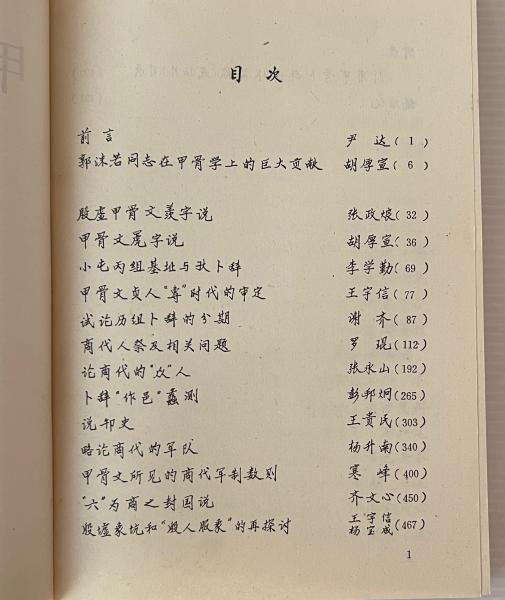 目次
前言 尹达(1)
郭沫若同志在甲骨学上的巨大贡献 胡厚宣(6)
殷虚甲骨文羡字说 张政烺(32)
甲骨文字说 胡厚宣(36)
小屯丙组基址与扶卜辞 李学勤(69)
甲骨文贞人“專”时代的审定 王宇信(77)
试论历组卜辞的分期 谢齐(87)
商代人祭及相关问题 罗琨(112)
论商代的“众”人 张永山(192)
卜辞“作邑”蠡测 彭邦炯(265)
说却史 王贵民(303)
略论商代的军队 杨升南(340)
甲骨文所见的商代军制数则 寒峰(400)
“六”为商之封国说 齐文心(450)
殷墟象坑和“殷人服象”的再探讨 王宇信 杨宝成(467)
1